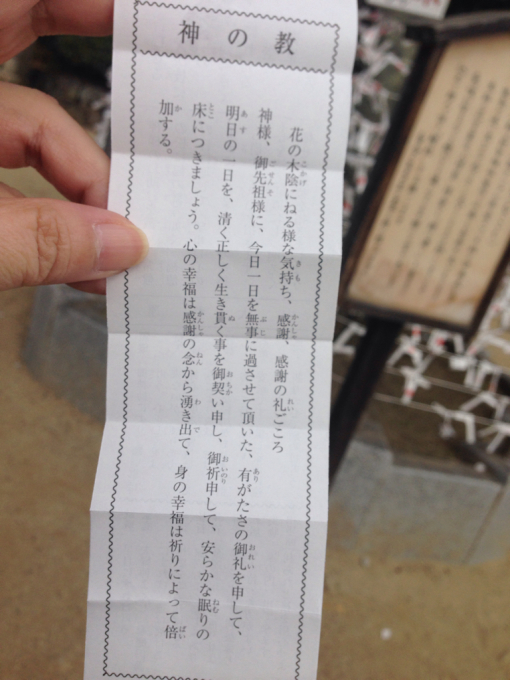 神の教
花の木陰にねる様な気持ち、感謝、感謝の礼ごころ
神様、御先祖様に、今日一日を無事に過させて頂いた、有がたさの御礼を申して、
明日の一日を、清く正しく生き貫く事を御契い申し、御祈申して、安らかな眠りの
床につきましょう。心の幸福は感謝の念から湧き出て、身の幸福は祈りによって倍
加する。